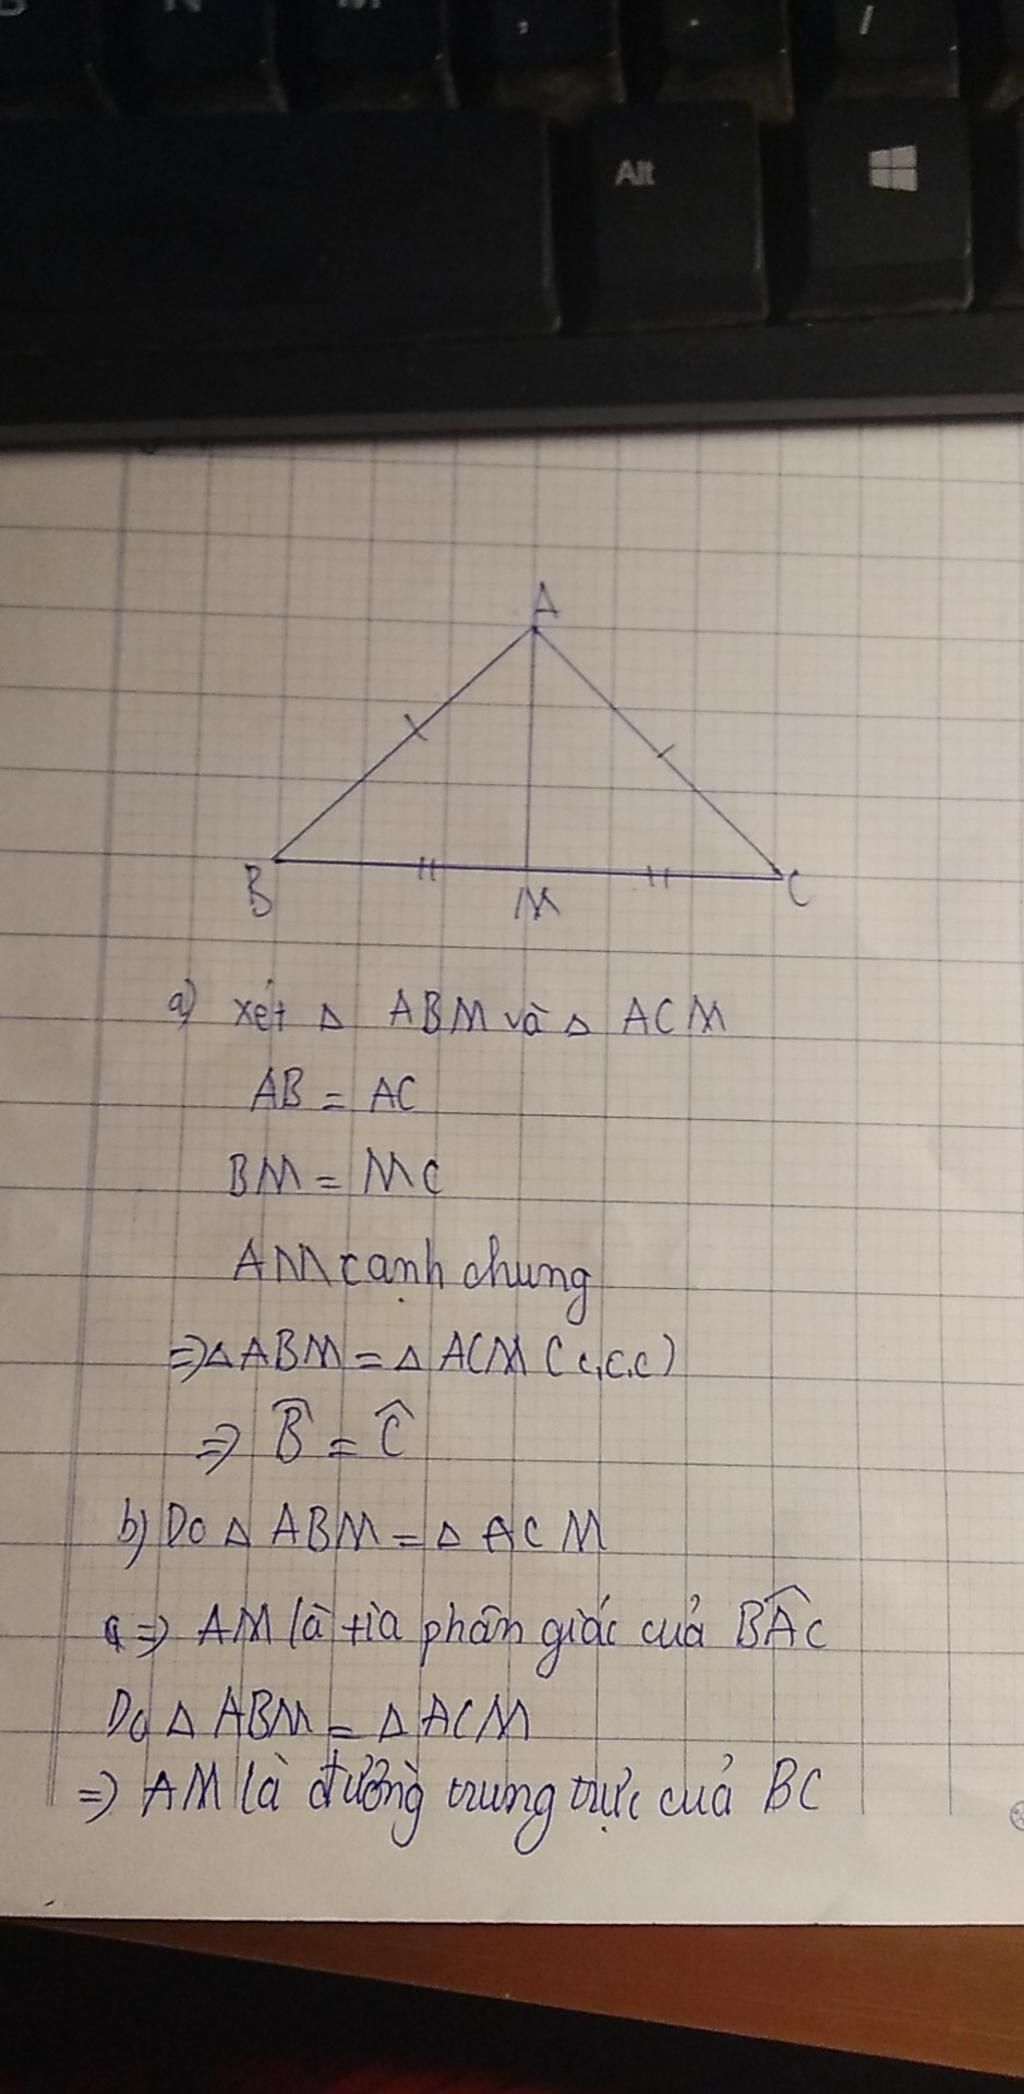 Alt
A
B
M
C
a) xét Δ ABM và Δ ACM
AB = AC
BM = MC
AM cạnh chung
=> Δ ABM = Δ ACM (c,c,c)
=> B̂ = Ĉ
b) Do Δ ABM = Δ ACM
=> AM là tia phân giác của BÂC
Do Δ ABM = Δ ACM
=> AM là đường trung trực của BC